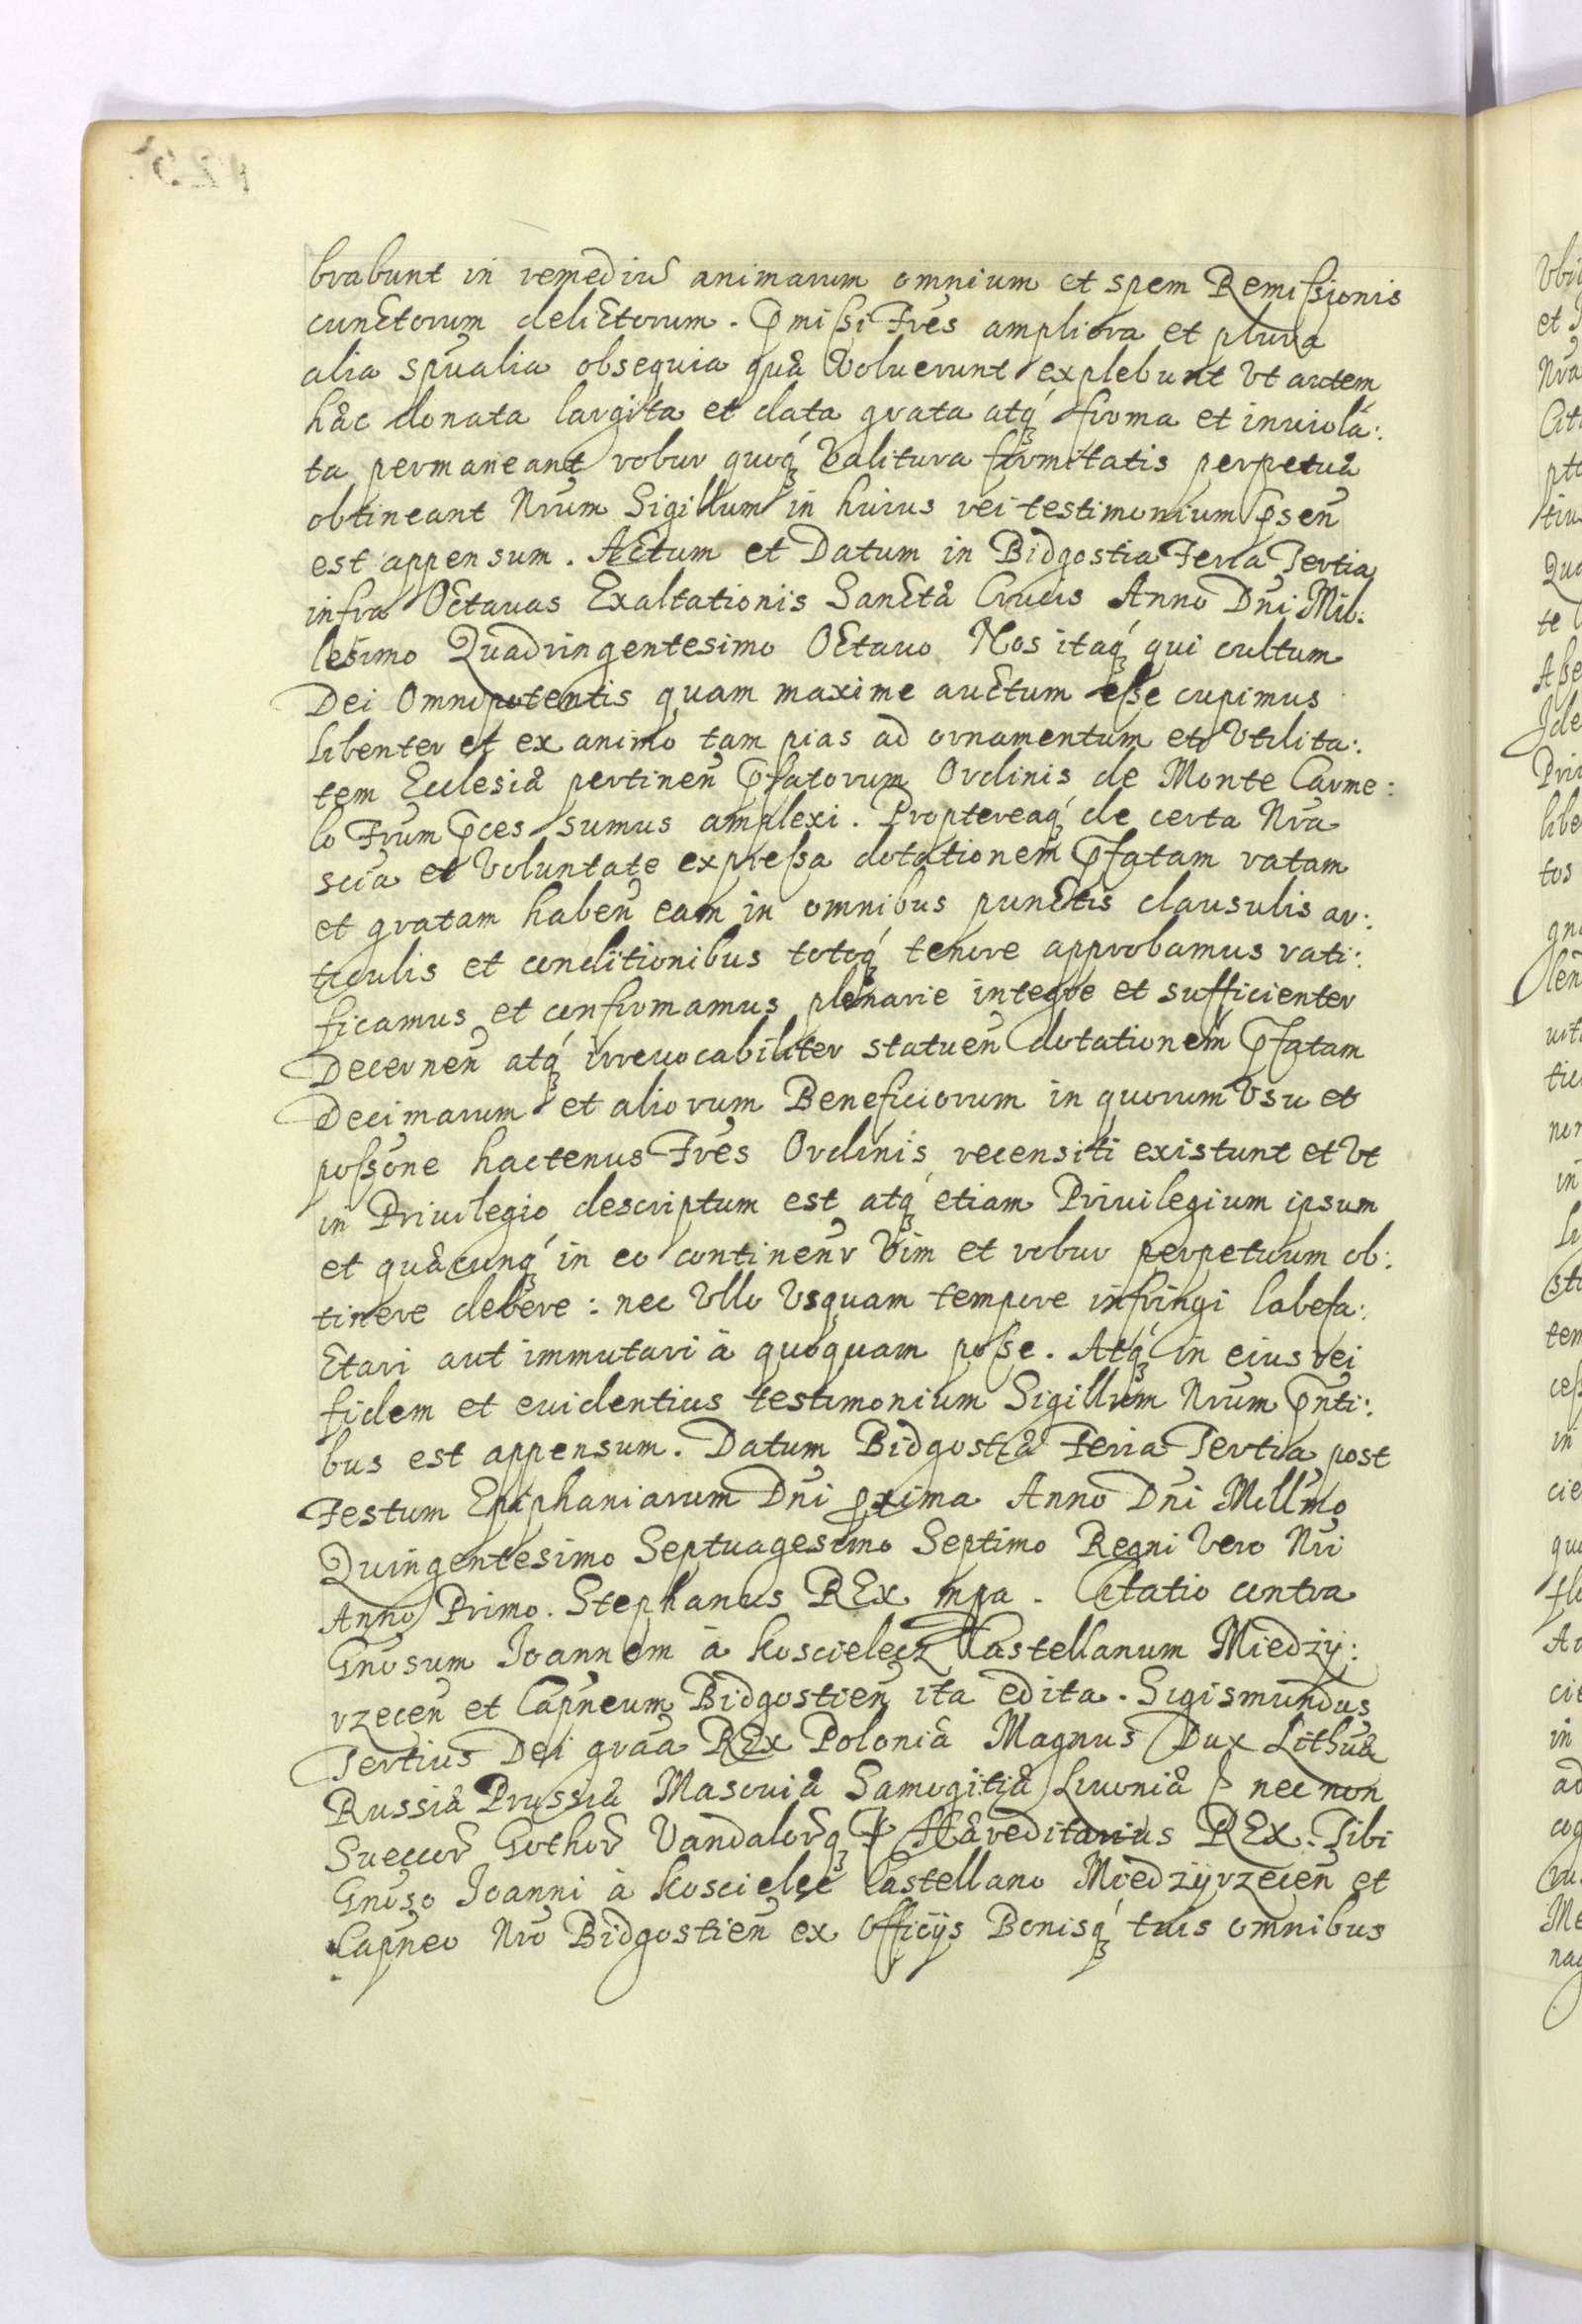 brabunt in remediũ animarum omnium et spem Remißionis
cunctorum delictorum. Pmißi Frẽs ampliora et plura
alia spũalia obsequia quæ Voluerunt explebunt Vt autem
hæc donata largita et data grata atq́ firma et inuiola:
ta permaneant robur quoq́ Valitura firmitatis perpetuæ
obtineant Nrũm Sigillum in huius rei testimonium p̃señ
est appensum. Actum et Datum in Bidgostia Feria Tertia
infra Octauas Exaltationis Sanctæ Crucis Anno Dñi Mil:
lesimo Quadringentesimo Octauo Nos itaq́ qui cultum
Dei Omnipotentis quam maxime auctum eße cupimus
libenter et ex animo tam pias ad ornamentum et Vtilita:
tem Ecclesiæ pertineñ p̃fatorum Ordinis de Monte Carme:
lo Frũm p̃ces sumus amplexi. Proptereaq́ de certa Nrã
sciã et Voluntate expreßa dotationem p̃fatam ratam
et gratam habeñ eam in omnibus punctis clausulis ar:
ticulis et conditionibus totoq́ tenore approbamus rati:
ficamus et confirmamus plenarie integre et sufficienter
Decerneñ atq́ irreuocabiliter statueñ dotationem p̃fatam
Decimarum et aliorum Beneficiorum in quorum Vsu et
poßone hactenus Frẽs Ordinis recensiti existunt et Vt
in Priuilegio descriptum est atq́ etiam Priuilegium ipsum
et quæcunq́ in eo contineñr Vim et robur perpetuum ob:
tinere debere: nec Vllo Vsquam tempore infringi labefa:
ctari aut immutari à quoquam poße. Atq́ in eius rei
fidem et euidentius testimonium Sigillum Nrũm p̃nti:
bus est appensum. Datum Bidgostiæ Feria Tertia post
Festum Epiphaniarum Dñi pxima Anno Dñi Millm̃o
Quingentesimo Septuagesimo Septimo Regni Vero Nrĩ
Anno Primo. Stephanus REx mpa. Citatio contra
Gnõsum Joannem à Koscielecz Castellanum Miedzÿ:
rzeceñ et Capñeum Bidgostieñ ita edita. Sigismundus
Tertius Dei graã REx Poloniæ Magnus Dux Lithuæ
Russiæ Prussiæ Masouiæ Samogitiæ Liuoniæ p nec non
Suecor̃ Gothor̃ Vandalor̃q́ p Hæreditarius REx. Tibi
Gnõso Joanni à Koscielec Castellano Miedzÿrzeceñ et
Capñeo Nrõ Bidgostieñ ex Officÿs Bonisq́ tuis omnibus